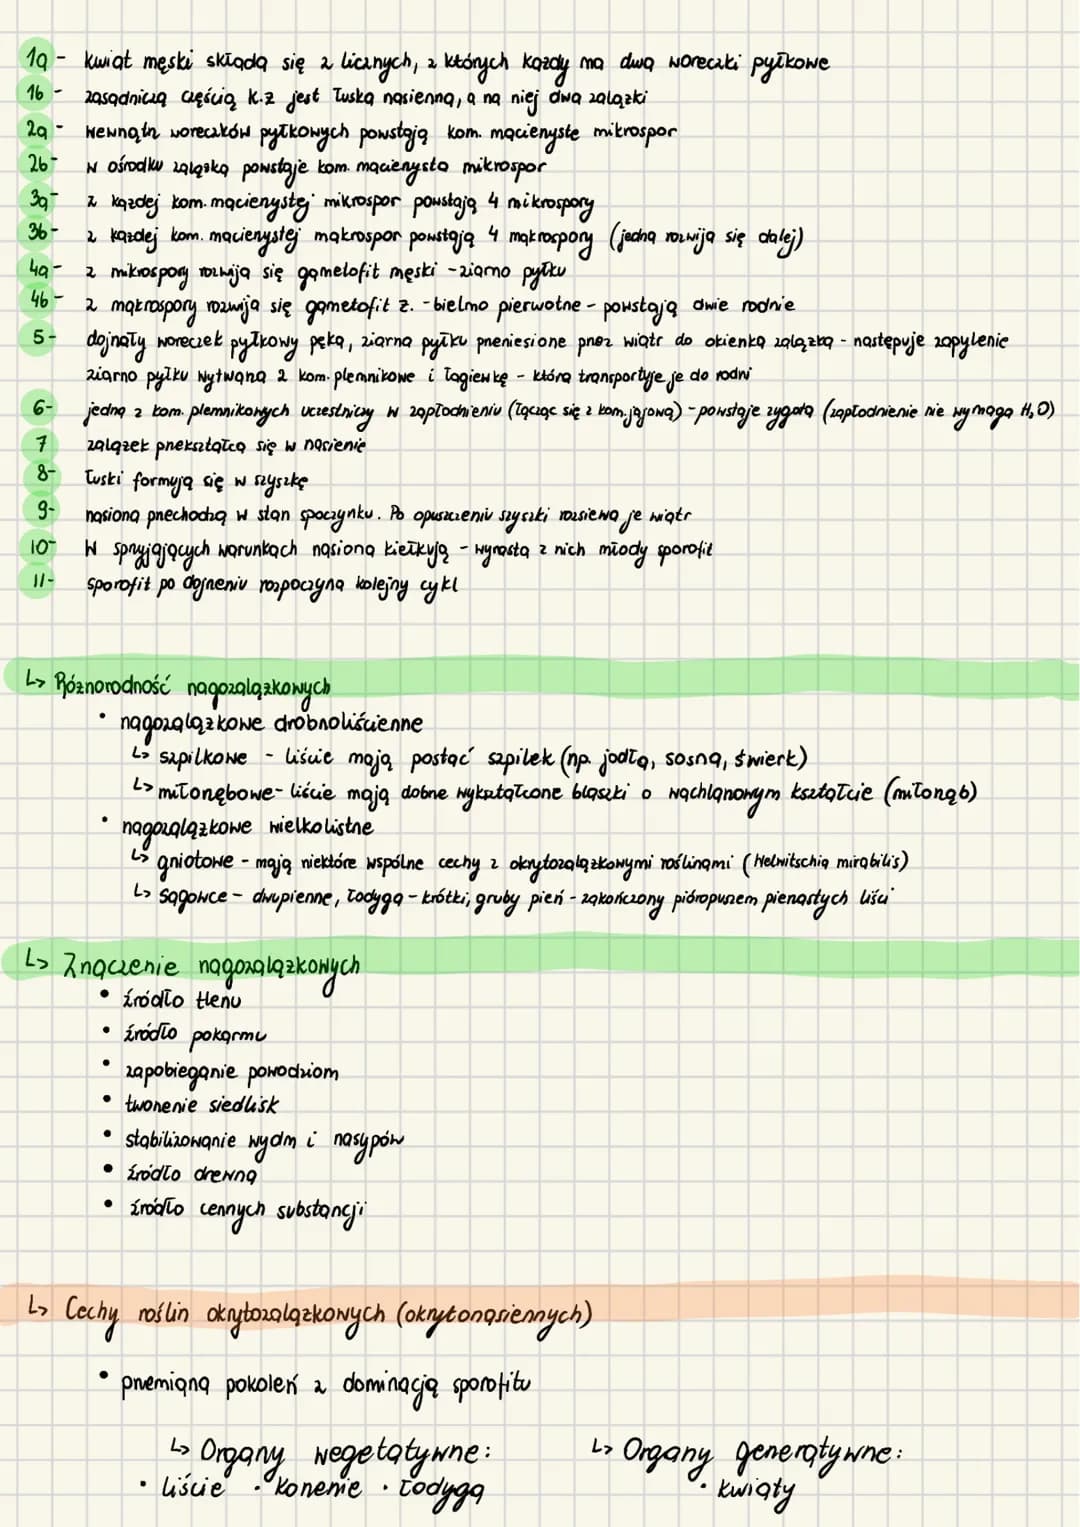 1a - kwiat męski składa się z licznych, z których każdy ma dwa woreczki pyłkowe
1b - zasadniczą częścią k.ż jest łuska nasienna, a na niej dwa zalążki
2a - wewnątrz woreczków pyłkowych powstają kom. macierzyste mikrospor
2b - w ośrodku zalążka powstaje kom. macierzysta mikrospor
3a - z każdej kom. macierzystej mikrospor powstają 4 mikrospory
3b - z każdej kom. macierzystej makrospor powstają 4 makrospory (jedna rozwija się dalej)
4a - z mikrospory rozwija się gametofit męski - ziarno pyłku
4b - z makrospory rozwija się gametofit ż. - bielmo pierwotne - powstają dwie rodnie
5 - dojrzały woreczek pyłkowy pęka, ziarna pyłku przeniesione przez wiatr do okienka zalążka - następuje zapylenie
ziarno pyłku wytwarza 2 kom. plemnikowe i łagiewkę - która transportuje je do rodni
6- jedna z kom. plemnikowych uczestniczy w zapłodnieniu (łącząc się z kom. jajową) - powstaje zygota (zapłodnienie nie wymaga H₂O)
7 zalążek przekształca się w nasienie
8- łuski formują się w szyszkę
9- nasiona przechodzą w stan spoczynku. Po opuszczeniu szyszki rozsiewa je wiatr
10- W sprzyjających warunkach nasiona kiełkują - wyrasta z nich młody sporofit
11- sporofit po dojrzeniu rozpoczyna kolejny cykl
↳ Różnorodność nagozalążkowych
• nagozalążkowe drobnoliścienne
↳ szpilkowe - liście mają postać szpilek (np. jodła, sosna, świerk)
↳ miłorzębowe - liście mają dobrze wykształcone blaszki o wachlarzowym kształcie (miłorząb)
• nagozalążkowe wielkolistne
↳ gniotowe - mają niektóre wspólne cechy z okrytozalążkowymi roślinami (Welwitschia mirabilis)
↳ sagowce - dwupienne, łodyga - krótki, gruby pień - zakończony pióropuszem pierzastych liści
↳ Znaczenie nagozalążkowych
• źródło tlenu
• źródło pokarmu
• zapobieganie powodziom
• tworzenie siedlisk
• stabilizowanie wydm i nasypów
• źródło drewna
• źródło cennych substancji
↳ Cechy roślin okrytozalążkowych (okrytonasiennych)
• przemiana pokoleń z dominacją sporofitu
↳ Organy wegetatywne: ↳ Organy generatywne:
• liście • korzenie • łodyga • kwiaty